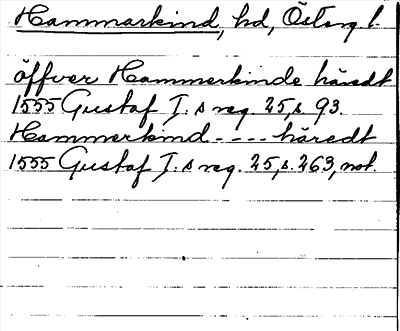 Hammarkind, hd, Österg l.
öffver Hammerkinde häredt
1555 Gustaf I.s reg. 25, s. 93.
Hammerkind - - - - häredt
1555 Gustaf I.s reg. 25, s. 263, not.